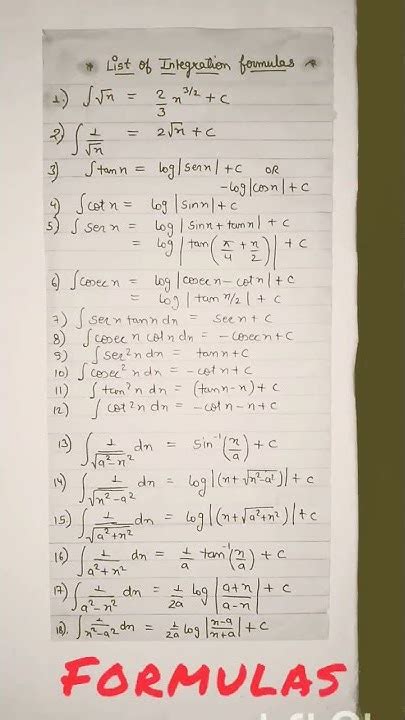 * List of Integration formulas *
1.) ∫√n = 2/3 n^3/2 + c
2) ∫ 1/√n = 2√n + c
3) ∫tan n = log|sec n| + c OR
-log|cos n| + c
4) ∫cot n = log|sin n| + c
5) ∫ sec n = log|sinn + tann| + c
= log|tan(π/4 + n/2)| + c
6) ∫cosec n = log|cosec n - cot n| + c
= log|tan n/2| + c
7) ∫ sec n tan n dn = sec n + c
8) ∫ cosec n cot n dn = -cosec n + c
9) ∫ sec²n dn = tann + c
10) ∫ cosec² n dn = -cot n + c
11) ∫ tan² n dn = (tan n - n) + c
12) ∫ cot² n dn = -cot n - n + c
13) ∫ 1/√a²-n² dn = sin⁻¹(n/a) + c
14) ∫ 1/√n²-a² dn = log|(n+√n²-a²)| + c
15) ∫ 1/√a²+n² dn = log|(n+√a²+n²)| + c
16) ∫ 1/a²+n² dn = 1/a tan⁻¹(n/a) + c
17) ∫ 1/a²-n² dn = 1/2a log|a+n/a-n| + c
18). ∫ 1/n²-a² dn = 1/2a log|n-a/n+a| + c
FORMULAS